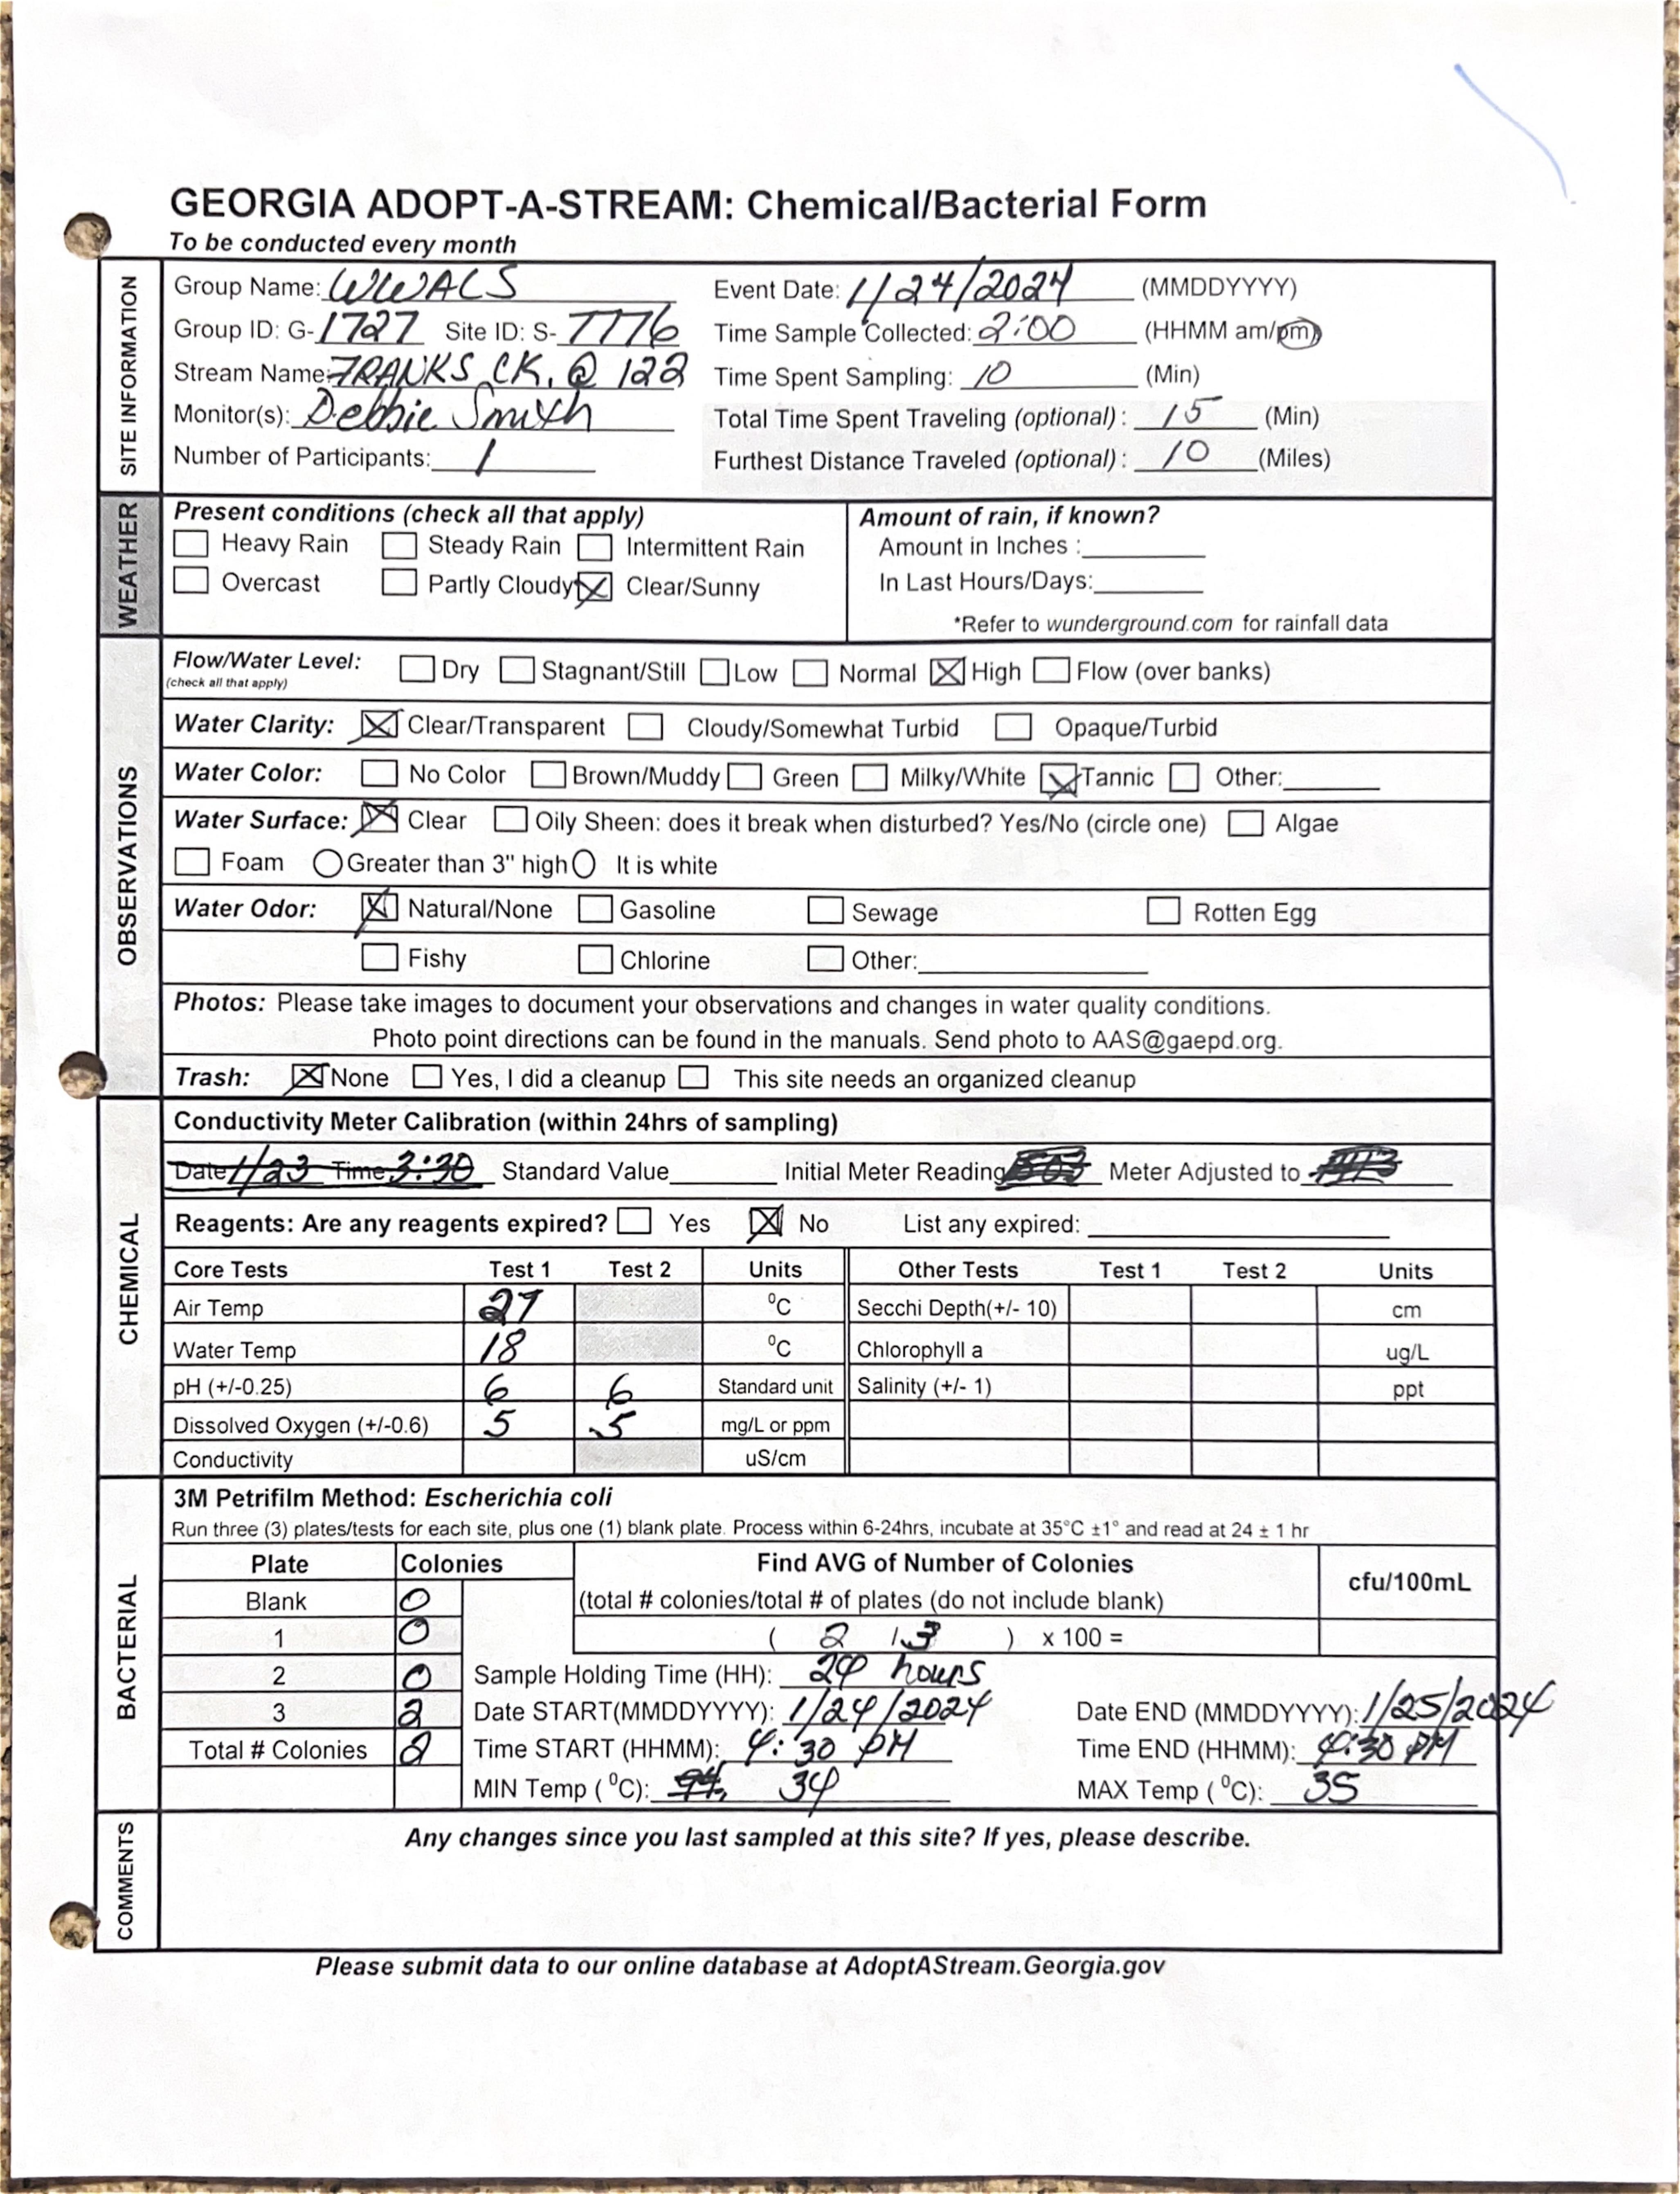 GEORGIA ADOPT-A-STREAM: Chemical/Bacterial Form
To be conducted every month
SITE INFORMATION
Group Name: WWALS Event Date: 1/24/2024 (MMDDYYYY)
Group ID: G-1727 Site ID: S-7776 Time Sample Collected: 2:00 (HHMM am/pm)
Stream Name: FRANKS CK. @ 122 Time Spent Sampling: 10 (Min)
Monitor(s): Debbie Smith Total Time Spent Traveling (optional) : 15 (Min)
Number of Participants: 1 Furthest Distance Traveled (optional) : 10 (Miles)
WEATHER
Present conditions (check all that apply) Amount of rain, if known?
Heavy Rain Steady Rain Intermittent Rain Amount in Inches :
Overcast Partly Cloudy Clear/Sunny In Last Hours/Days:
*Refer to wunderground.com for rainfall data
OBSERVATIONS
Flow/Water Level: Dry Stagnant/Still Low Normal High Flow (over banks)
(check all that apply)
Water Clarity: Clear/Transparent Cloudy/Somewhat Turbid Opaque/Turbid
Water Color: No Color Brown/Muddy Green Milky/White Tannic Other:
Water Surface: Clear Oily Sheen: does it break when disturbed? Yes/No (circle one) Algae
Foam Greater than 3" high It is white
Water Odor: Natural/None Gasoline Sewage Rotten Egg
Fishy Chlorine Other:
Photos: Please take images to document your observations and changes in water quality conditions.
Photo point directions can be found in the manuals. Send photo to AAS@gaepd.org.
Trash: None Yes, I did a cleanup This site needs an organized cleanup
CHEMICAL
Conductivity Meter Calibration (within 24hrs of sampling)
Date 1/23 Time 3:30 Standard Value Initial Meter Reading Meter Adjusted to
Reagents: Are any reagents expired? Yes No List any expired:
Core Tests Test 1 Test 2 Units Other Tests Test 1 Test 2 Units
Air Temp 27 ⁰C Secchi Depth(+/- 10) cm
Water Temp 18 ⁰C Chlorophyll a ug/L
pH (+/-0.25) 6 6 Standard unit Salinity (+/- 1) ppt
Dissolved Oxygen (+/-0.6) 5 5 mg/L or ppm
Conductivity uS/cm
BACTERIAL
3M Petrifilm Method: Escherichia coli
Run three (3) plates/tests for each site, plus one (1) blank plate. Process within 6-24hrs, incubate at 35°C ±1° and read at 24 ± 1 hr
Plate Colonies Find AVG of Number of Colonies cfu/100mL
Blank 0 (total # colonies/total # of plates (do not include blank)
1 0 ( 2 / 3 ) x 100 =
2 0 Sample Holding Time (HH): 24 hours
3 2 Date START(MMDDYYYY): 1/24/2024 Date END (MMDDYYYY): 1/25/2024
Total # Colonies 2 Time START (HHMM): 4:30 PM Time END (HHMM): 4:30 PM
MIN Temp ( ⁰C): 34 MAX Temp ( ⁰C): 35
COMMENTS
Any changes since you last sampled at this site? If yes, please describe.
Please submit data to our online database at AdoptAStream.Georgia.gov